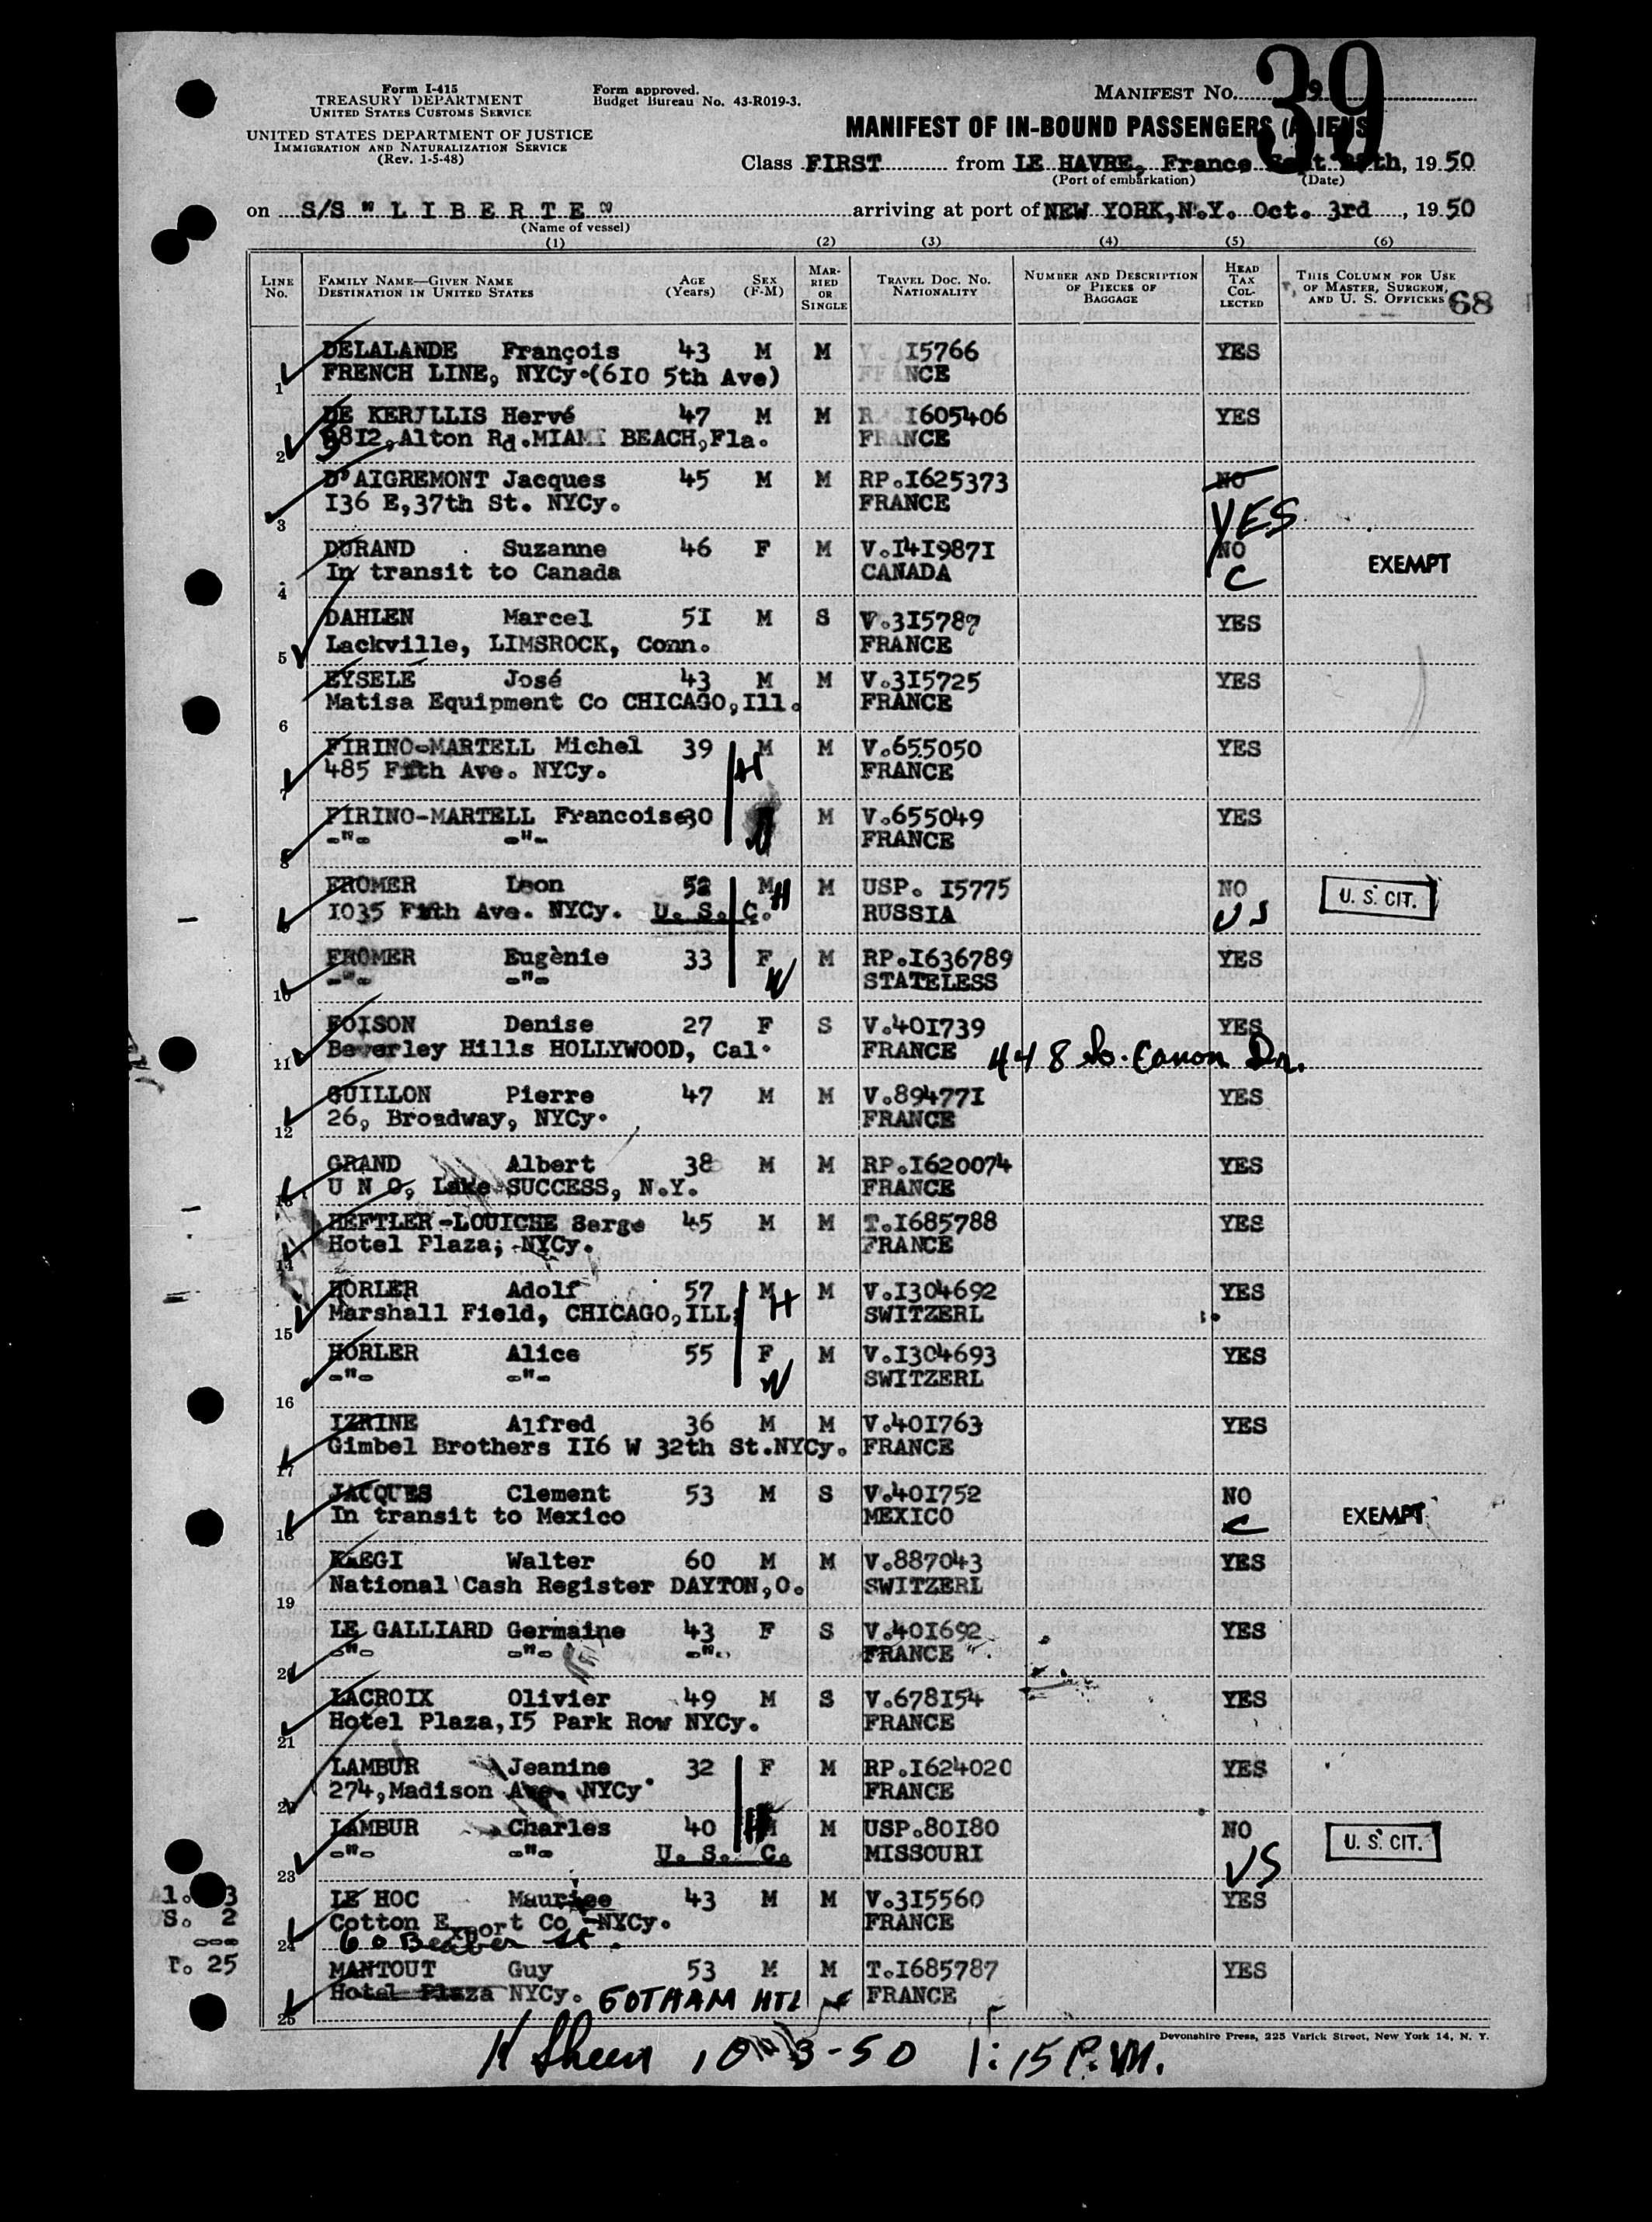 Form I-415
TREASURY DEPARTMENT
UNITED STATES CUSTOMS SERVICE
UNITED STATES DEPARTMENT OF JUSTICE
IMMIGRATION AND NATURALIZATION SERVICE
(Rev. 1-5-48)
Form approved.
Budget Bureau No. 43-R019-3.
MANIFEST NO. 39
MANIFEST OF IN-BOUND PASSENGERS (ALIENS)
Class FIRST from LE HAVRE, France Sept th, 19 50
(Port of embarkation) (Date)
on S/S "LIBERTE" arriving at port of NEW YORK, N.Y. Oct. 3rd, 19 50
(Name of vessel)
(1) (2) (3) (4) (5) (6)
LINE NO. FAMILY NAME—GIVEN NAME DESTINATION IN UNITED STATES AGE (YEARS) SEX (F-M) MARRIED OR SINGLE TRAVEL DOC. NO. NATIONALITY NUMBER AND DESCRIPTION OF PIECES OF BAGGAGE HEAD TAX COLLECTED THIS COLUMN FOR USE OF MASTER, SURGEON, AND U. S. OFFICERS 68
DELALANDE François 43 M M I5766 YES
1 FRENCH LINE, NYCy.(6I0 5th Ave) FRANCE
DE KERILLIS Hervé 47 M M I605406 YES
2 58I2, Alton Rd.MIAMI BEACH,Fla. FRANCE
D'AIGREMONT Jacques 45 M M RP.I625373 NO
3 I36 E,37th St. NYCy. FRANCE YES
DURAND Suzanne 46 F M V.I4I987I NO EXEMPT
4 In transit to Canada CANADA C
DAHLEN Marcel 5I M S V.3I5787 YES
5 Lackville, LIMSROCK, Conn. FRANCE
EYSELE José 43 M M V.3I5725 YES
6 Matisa Equipment Co CHICAGO,Ill. FRANCE
FIRINO-MARTELL Michel 39 M M V.655050 YES
7 485 Fifth Ave. NYCy. H FRANCE
FIRINO-MARTELL Francoise 30 M V.655049 YES
8 -"- -"- W FRANCE
FROMER Leon 52 M H M USP. I5775 NO U. S. CIT.
9 I035 Fifth Ave. NYCy. U. S. C. RUSSIA US
FROMER Eugènie 33 F M RP.I636789 YES
10 -"- -"- W STATELESS
FOISON Denise 27 F S V.40I739 YES
11 Beverley Hills HOLLYWOOD, Cal. FRANCE 448 So. Canon Dr.
GUILLON Pierre 47 M M V.89477I YES
12 26, Broadway, NYCy. FRANCE
GRAND Albert 38 M M RP.I620074 YES
13 U N O, Lake SUCCESS, N.Y. FRANCE
HEFTLER-LOUICHE Serge 45 M M T.I685788 YES
14 Hotel Plaza, NYCy. FRANCE
HORLER Adolf 57 M H M V.I304692 YES
15 Marshall Field, CHICAGO,ILL. SWITZERL
HORLER Alice 55 F M V.I304693 YES
16 -"- -"- W SWITZERL
IZRINE Alfred 36 M M V.40I763 YES
17 Gimbel Brothers II6 W 32th St.NYCy. FRANCE
JACQUES Clement 53 M S V.40I752 NO EXEMPT
18 In transit to Mexico MEXICO C
KAEGI Walter 60 M M V.887043 YES
19 National Cash Register DAYTON,O. SWITZERL
LE GALLIARD Germaine 43 F S V.40I692 YES
20 -"- -"- -"- FRANCE
LACROIX Olivier 49 M S V.678I54 YES
21 Hotel Plaza,I5 Park Row NYCy. FRANCE
LAMBUR Jeanine 32 F M RP.I624020 YES
22 274,Madison Ave. NYCy. FRANCE
LAMBUR Charles 40 M M USP.80I80 NO U. S. CIT.
23 -"- -"- U. S. C. MISSOURI US
LE HOC Maurice 43 M M V.3I5560 YES
24 Cotton Export Co NYCy. FRANCE
60 Beaver St.
MANTOUT Guy 53 M M T.I685787 YES
25 Hotel Plaza NYCy. GOTHAM HTL FRANCE
US. 2
---
T. 25
Devonshire Press, 225 Varick Street, New York 14, N. Y.
K Sheen 10-3-50 1:15 P.M.